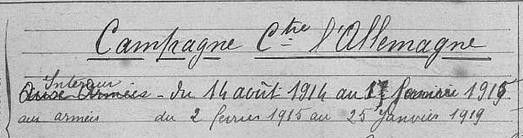 Campagne Ctre l'Allemagne
Intérieur
Aux Armées - du 14 août 1914 au 1er février 1915
aux armées du 2 février 1915 au 25 janvier 1919